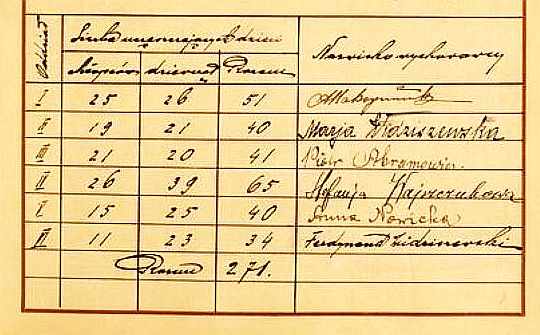 Oddział Liczba uczęszczających dzieci Nazwisko wychowawcy
chłopców dziewcząt Razem
I 25 26 51
II 19 21 40 Marja Widziszewska
III 21 20 41 Piotr Abramowicz
26 39 65 Stefanja
V 15 25 40 Anna Nawicka
11 23 34 Ferdynand
Razem 271.